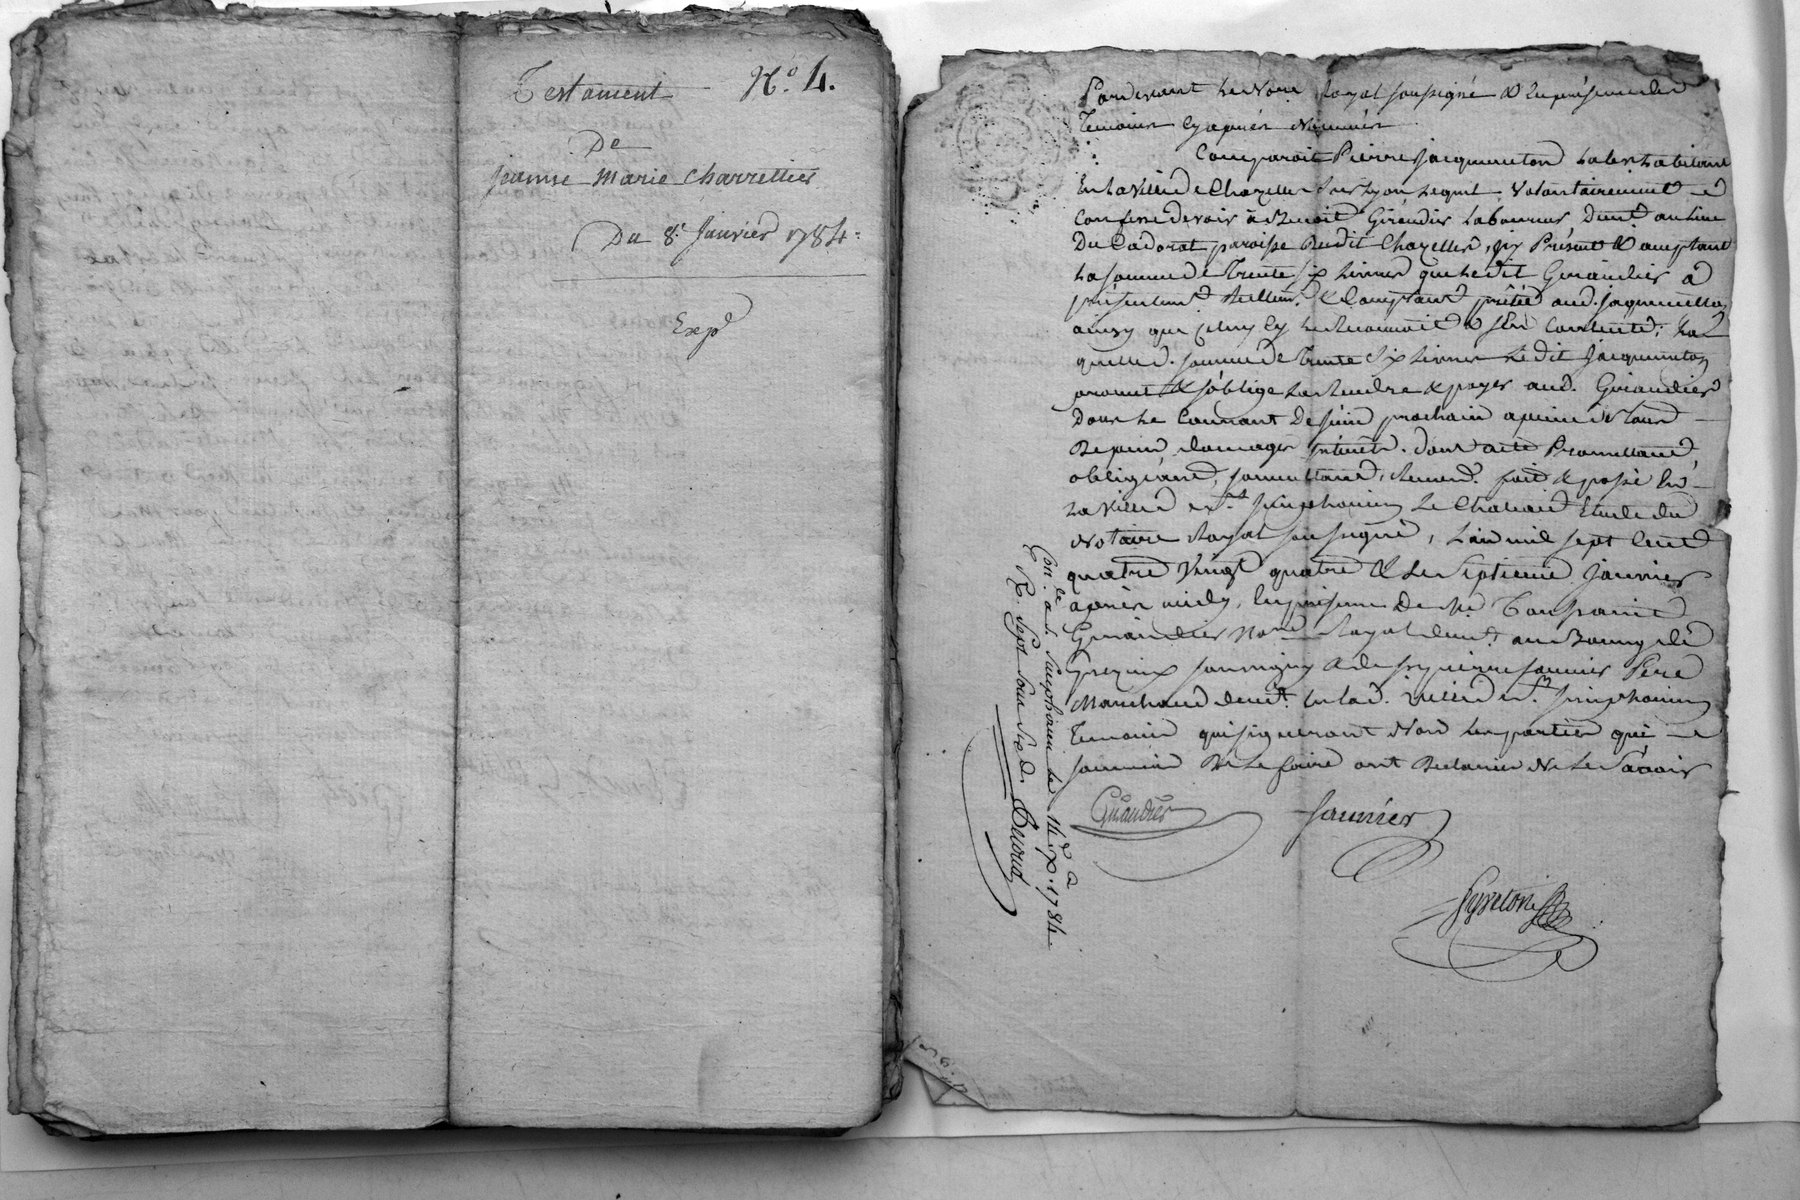 Testament N.º 4.
De
Jeanne Marie Charrettier
Du 8.e Janvier 1784.
Exp.é
Pardevant Le Notre Royal soussigné & En présence des
Temoins Cyaprés Nommés
Comparoit Pierre Jacquemeton habitant
En la Ville de Chazelles sur Lyon Lequel Volontairement
Confesse devoir à Benoit Giraudier Laboureur Demt au Lieu
Du Cadorat paroisse dudit Chazelles, icy Présent & acceptant
La somme de Trente six Livres que Ledit Giraudier a
présentemt Reellemt & Comptant prêtée aud. Jacquemetton
ainsy que celuy cy Le Reconnoit & s'En Contente; La
quelle d. somme de Trente Six Livres Le dit Jacquemeton
promet & s'oblige La Rendre & payer aud. Giraudier
Dans Le Courant De juin prochain a peine de tous
Depens, domages intérêts. dont acte Promettant,
obligeant, soumettant, Renond. fait & passé En
La Ville de St. Simphorien Le Chateau Etude du
Notaire Royal soussigné, L'an mil sept Cent
quatre Vingt quatre & Le Septieme Janvier
après midy, En présence De Me
Giraudier Nore Royal demt. au Bourg de
Grezieux & de sr saunier Pere
Marchand demt. En lad. Ville de St. Simphorien
Temoins qui signeront Non Les parties qui
sommées De Le faire ont Declarées Ne Le Sçavoir
Giraudier saunier
Con.le a S. Simphorien le 14 1784.
R. Sept sous six d.